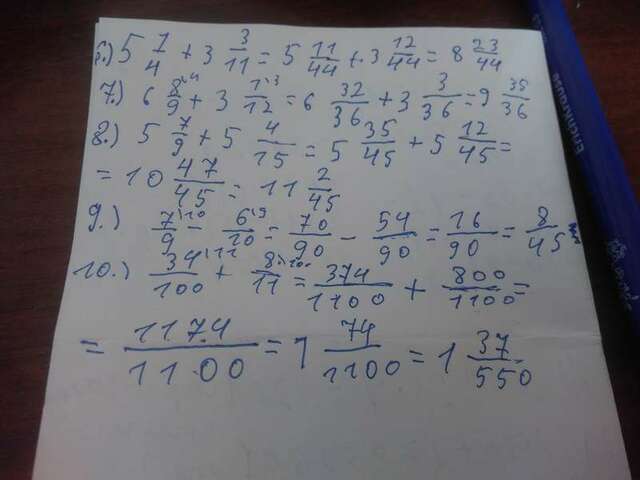 6.) 5 1/4 + 3 3/11 = 5 11/44 + 3 12/44 = 8 23/44
7.) 6 8/9 + 3 1/12 = 6 32/36 + 3 3/36 = 9 35/36
8.) 5 7/9 + 5 4/15 = 5 35/45 + 5 12/45 =
= 10 47/45 = 11 2/45
9.) 7/9 - 6/10 = 70/90 - 54/90 = 16/90 = 8/45
10.) 34/100 + 8/11 = 374/1100 + 800/1100 =
= 1174/1100 = 1 74/1100 = 1 37/550
ERICHKRAUSE